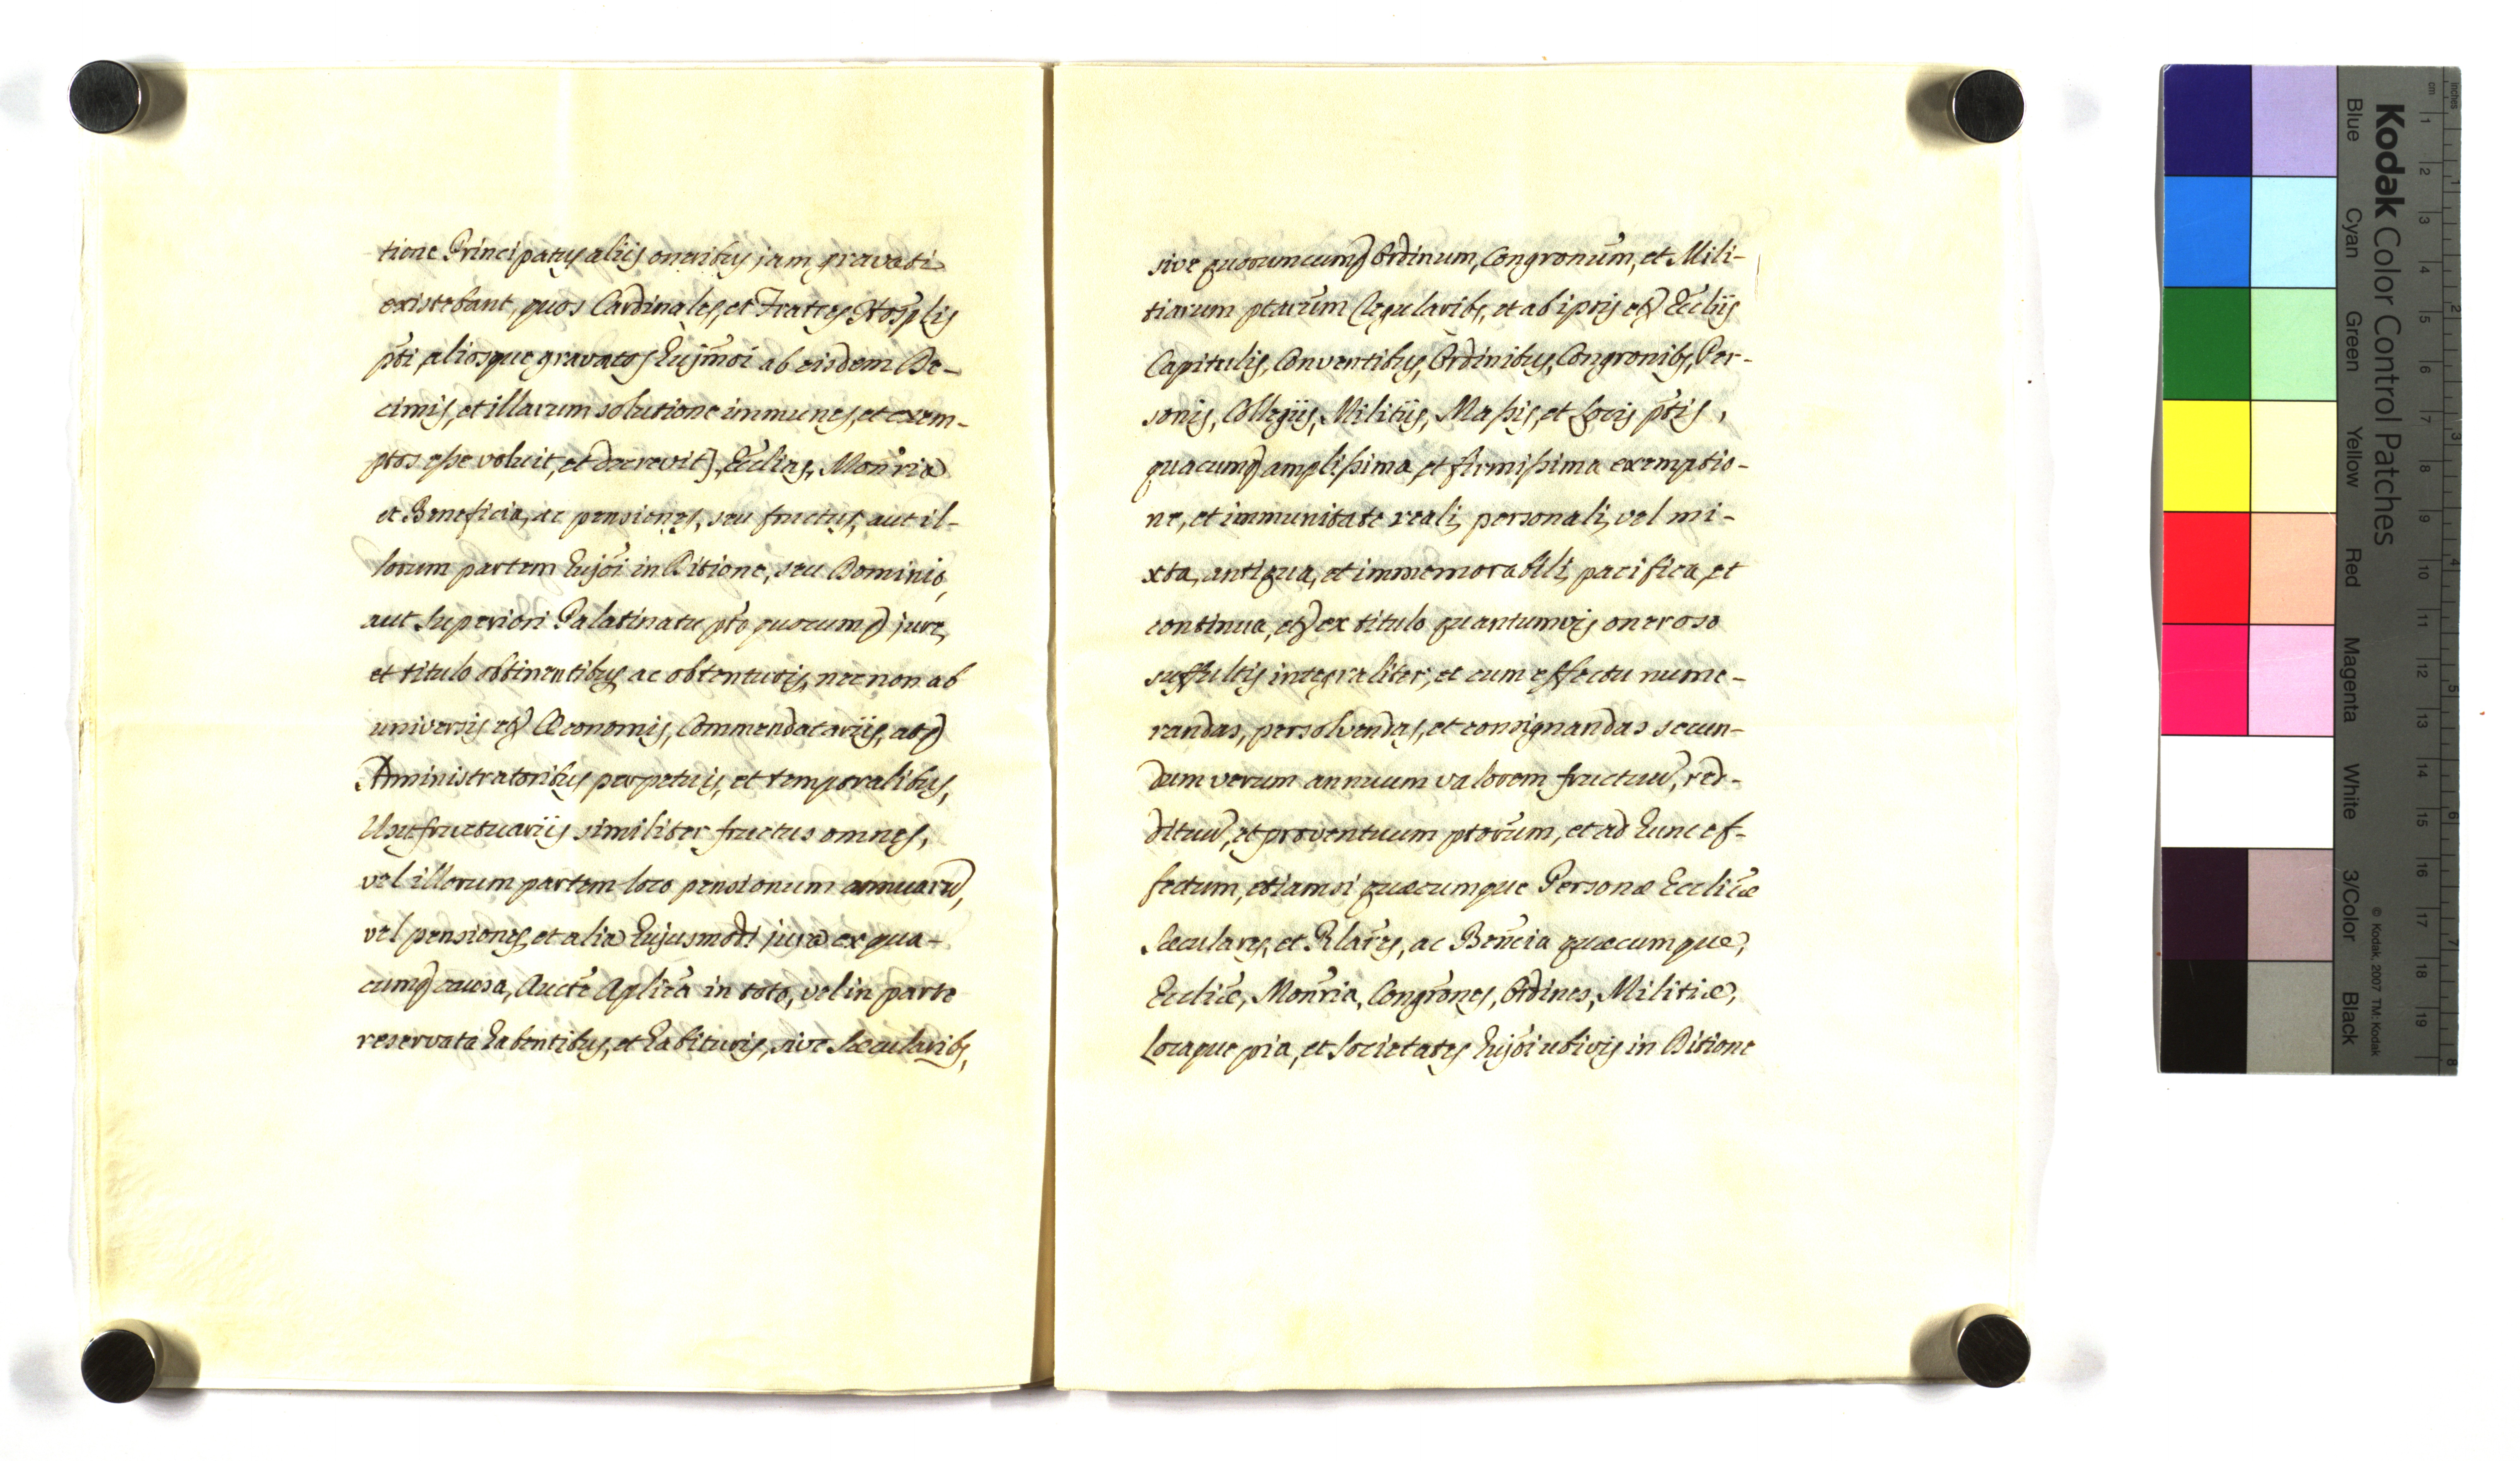 tione Principatus aliis oneribus jam gravati
existebant, quos Cardinales, et Fratres Hosplis
pti, aliosque gravatos hujmoi ab eisdem De-
cimis, et illarum solutione immunes, et exem-
ptos esse voluit, et decrevit], Ecclias, Monria
et Beneficia, ac pensiones, seu fructus, aut il-
lorum partem hujoi in Ditione, seu Dominio,
aut Superiori Palatinatu pto quocumq jure,
et titulo obtinentibus ac obtenturis, nec non ab
universis etq Œconomis, Commendatariis, atq
Administratoribus perpetuis, et temporalibus,
Usufructuariis similiter fructus omnes,
vel illorum partem loco pensionum annuarum,
vel pensiones, et alia hujusmodi jura ex qua-
cumq causa, Aucte Aplica in toto, vel in parte
reservata habentibus, et habituris, sive Sæcularibs,
sive quoruncumq Ordinum, Congronum, et Mili-
tiarum ptarum Regularibs, et ab ipsis etq Eccliis
Capitulis, Conventibus, Ordinibus, Congronibs, Per-
sonis, Collegiis, Militiis, Massis, et Locis ptis,
quacumq amplissima, et firmissima exemptio-
ne, et immunitate reali, personali, vel mi-
xta, antiqua, et immemorabili, pacifica, et
continua, etq ex titulo quantumvis oneroso
suffultis integraliter, et cum effectu nume-
randas, persolvendas, et consignandas secun-
dum verum annuum valorem fructuum, red-
dituum, et proventuum ptorum, et ad hunc ef-
fectum, etiamsi quæcumque Personæ Eccliæ
Sæculares, et Rlares, ac Bencia quæcumque,
Eccliæ, Monria, Congrones, Ordines, Militiæ,
Locaque pia, et Societates hujoi ubivis in Ditione
Kodak Color Control Patches
Blue Cyan Green Yellow Red Magenta White 3/Color Black
© Kodak, 2007 TM: Kodak
inches 1 2 3 4 5 6 7 8
cm 1 2 3 4 5 6 7 8 9 10 11 12 13 14 15 16 17 18 19